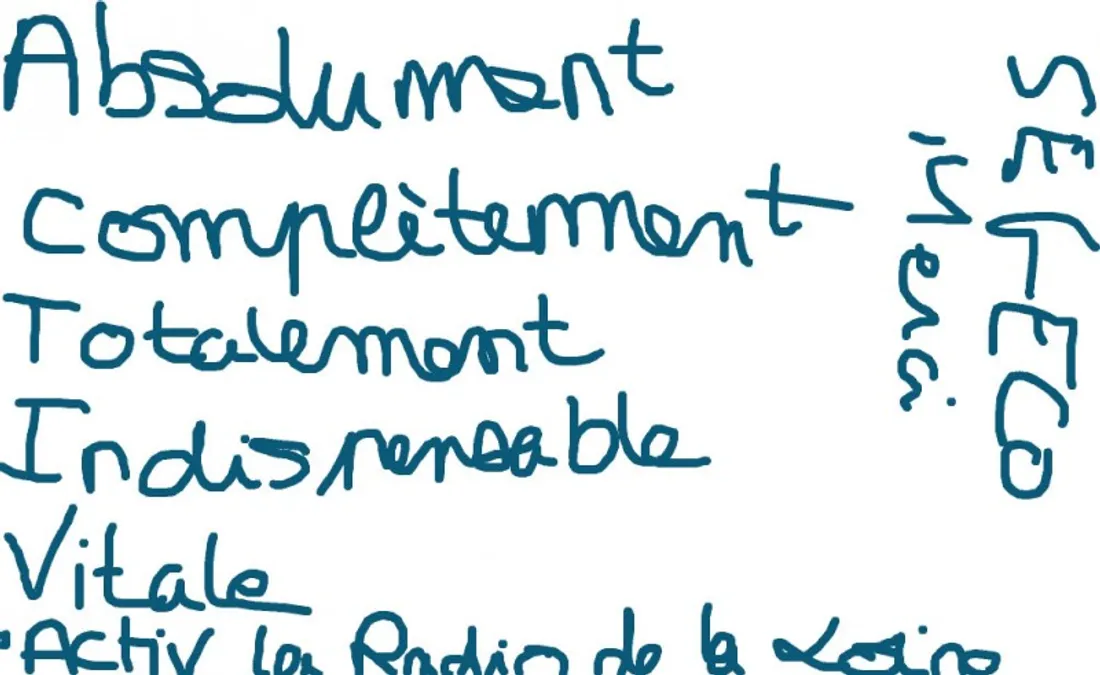 Absolument
Complètement
Totalement
Indispensable
Vitale
Activ la Radio de la Loire